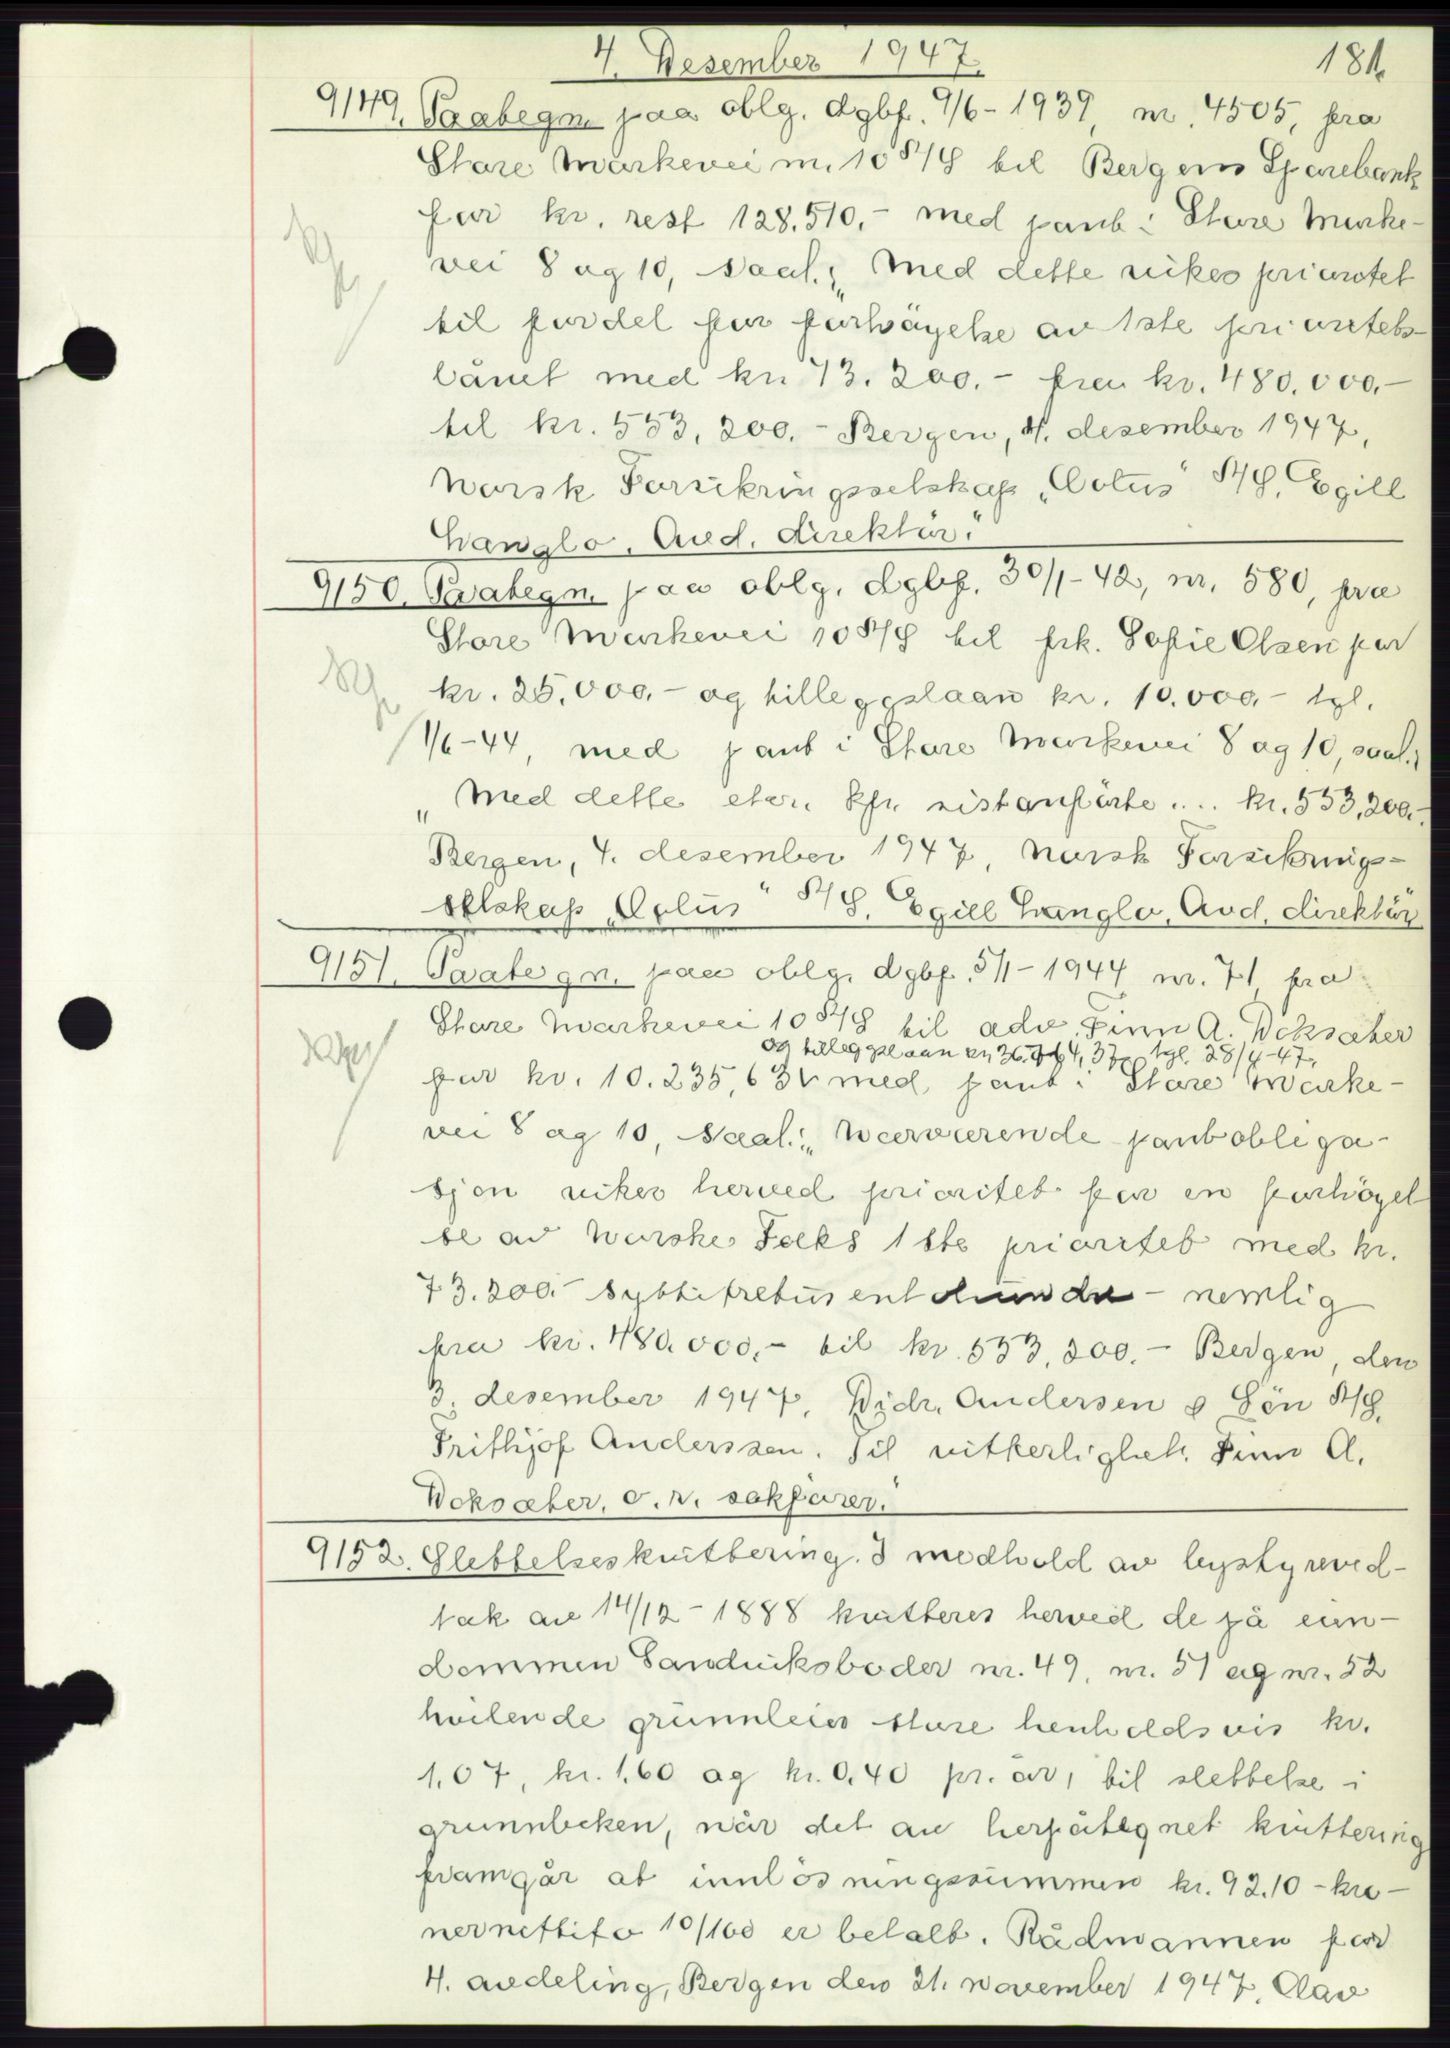 4. Desember 1947.
181
9149. Paabegn. paa oblg. dgbf. 9/6-1939, nr. 4505, fra
Store Markevei nr. 10 A/S til Bergens Sparebank
for kr. rest 128.510,- med pant i Store Marke-
vei 8 og 10, saal.: "Med dette vikes prioritet
til fordel for forhöyelse av 1ste prioritets-
lånet med kr. 73.200.- fra kr. 480.000.-
til kr. 553.200.- Bergen, 4. desember 1947,
Norsk Forsikringsselskap "Lotus" A/S, Egill
Langlo. Avd. direktör."
9150. Paategn. paa oblg. dgbf. 30/1-42, nr. 580, fra
Store Markevei 10 A/S til frk. Sofie Olsen for
kr. 25.000.- og tilleggslaan kr. 10.000,- tgl.
1/6-44, med pant i Store Markevei 8 og 10, saal.:
"Med dette etc. kfr. sistanförte .... kr. 553.200.-
Bergen, 4. desember 1947, Norsk Forsikrings-
selskap "Lotus" A/S. Egill Langlo, Avd. direktör
9151. Paategn. paa oblg. dgbf. 5/1-1944 nr. 71 fra
Store Markevei 10 A/S til adv. Finn A. Woksæter
og tilleggslaan kr. 36.764,37 tgl. 28/4-47,
for kr. 10.235,63 med pant i Store Marke-
vei 8 og 10, saal.: "Nærværende pantobliga-
sjon viker herved prioritet for en forhöyel
se av Norske Folks 1ste prioritet med kr.
73.200.- syttitretusentohundre - nemlig
fra kr. 480.000,- til kr. 553.200.- Bergen, den
3. desember 1947. Didr. Andersen & Sön A/S.
Frithjof Anderssen. Til vitterlighet. Finn A.
Woksæter, o.r. sakförer."
9152. Slettelseskvittering. I medhold av bystyreved-
tak av 14/12-1888 kvitteres herved de på eien-
dommen Sandviksboder nr. 49, nr. 51 og nr. 52
hvilende grunnleier store henholdsvis kr.
1.07, kr. 1.60 og kr. 0.40 pr. år, til slettelse i
grunnboken, når det av herpåtegnet kvittering
framgår at innlösningssummen kr. 92.10 - kro-
nernittito 10/100 er betalt. Rådmannen for
4. avdeling, Bergen den 21. november 1947. Olav